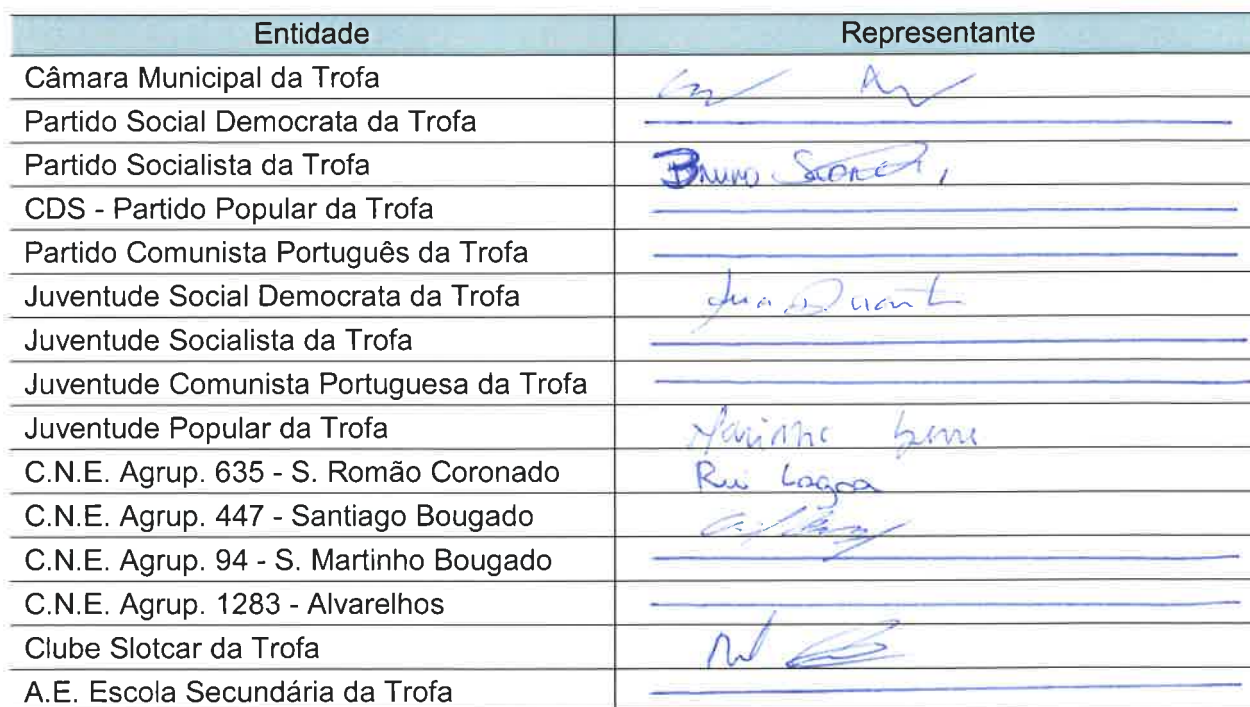 Entidade Representante
Câmara Municipal da Trofa
Partido Social Democrata da Trofa
Partido Socialista da Trofa Bruno
CDS - Partido Popular da Trofa
Partido Comunista Português da Trofa
Juventude Social Democrata da Trofa Duarte
Juventude Socialista da Trofa
Juventude Comunista Portuguesa da Trofa
Juventude Popular da Trofa
C.N.E. Agrup. 635 - S. Romão Coronado Rui Lagoa
C.N.E. Agrup. 447 - Santiago Bougado
C.N.E. Agrup. 94 - S. Martinho Bougado
C.N.E. Agrup. 1283 - Alvarelhos
Clube Slotcar da Trofa
A.E. Escola Secundária da Trofa